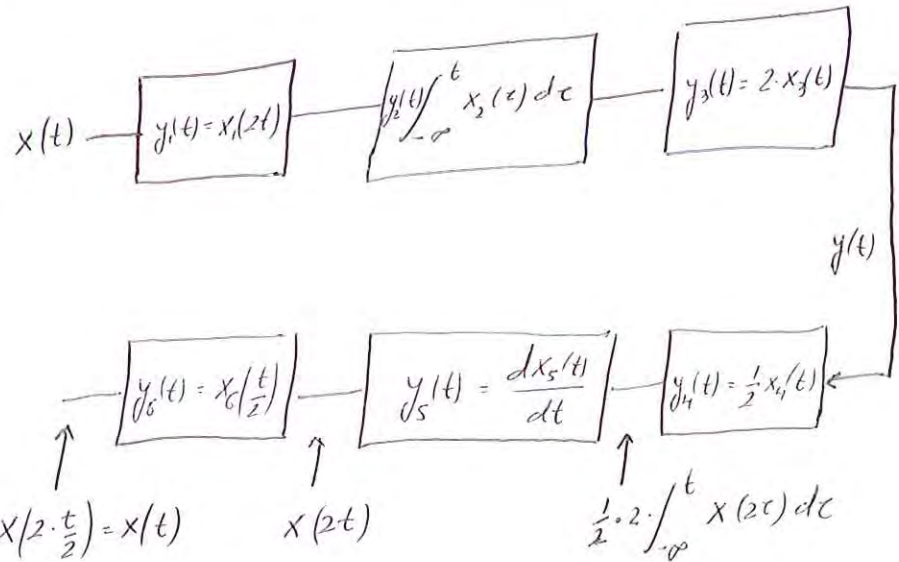 x(t)
y₁(t) = x₁(2t)
y₂(t) ∫_{-∞}^{t} x₂(τ) dτ
y₃(t) = 2·x₃(t)
y(t)
y₆(t) = x₆(t/2)
y₅(t) = dx₅(t)/dt
y₄(t) = 1/2 x₄(t)
x(2·t/2) = x(t)
x(2t)
1/2·2·∫_{-∞}^{t} x(2τ) dτ